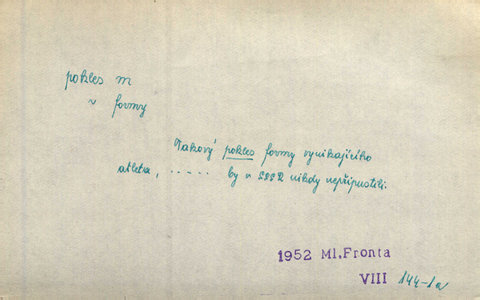 pokles m
v formy
Takový pokles formy vynikajícího
atleta, ..... by v SSSR nikdy nepřipustili.
1952 Ml.Fronta
VIII 144-1a